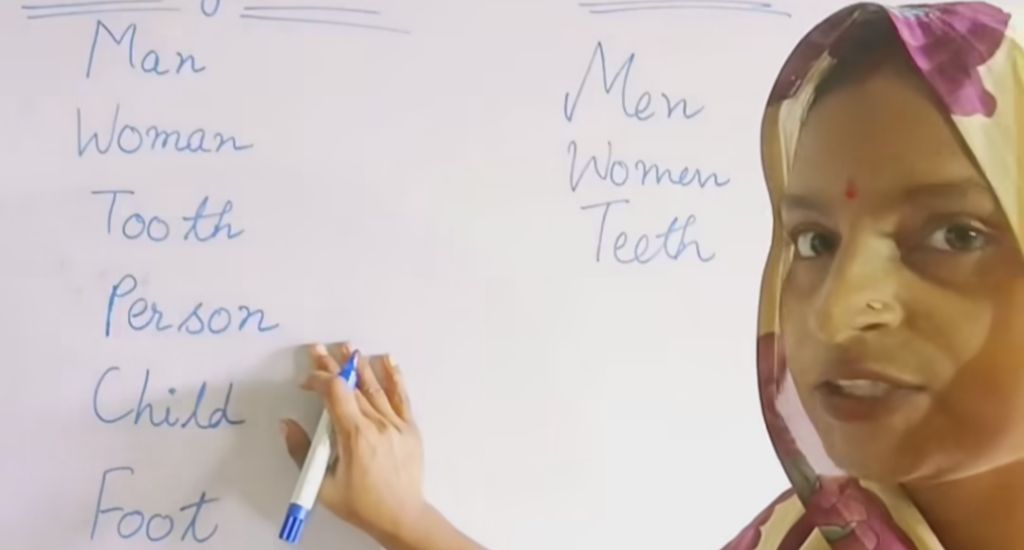 Man
Woman
Tooth
Person
Child
Foot
Men
Women
Teeth